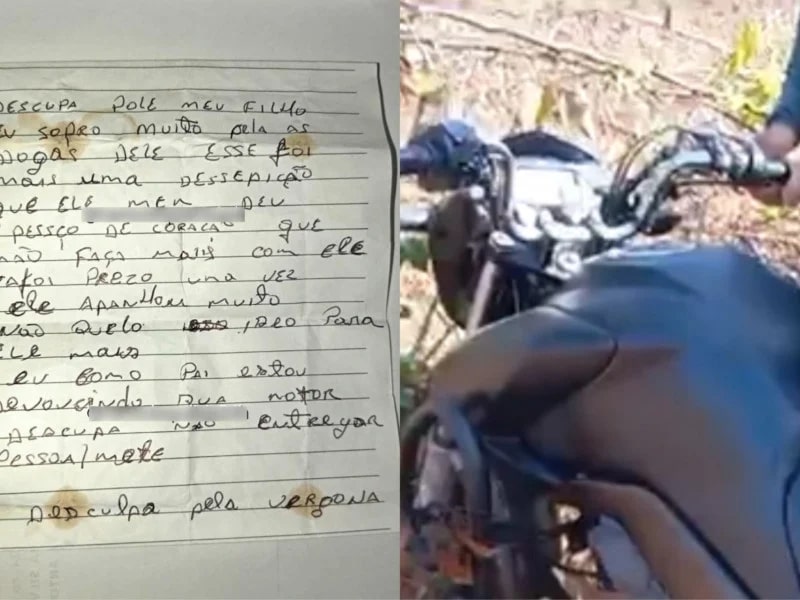 DESCUPA POLE MEU FILHO
EU SOFRO MUITO PELA AS
DOGAS DELE ESSE FOI
MAIS UMA DESSEPIÇÃO
QUE ELE MEU DEU
PESSÇO DE CORAÇÃO QUE
NÃO FAÇA MAIS COM ELE
FOI PREZO UMA VEZ
ELE APANHOU MUITO
NÃO QUELO PARA
ELE MAIS
EU COMO PAI ESTOU
DEVOVEINDO SUA MOTOR
DESCUPA NÃO ENTREGAR
PESSOA/METE
DESCULPA PELA VERGONA